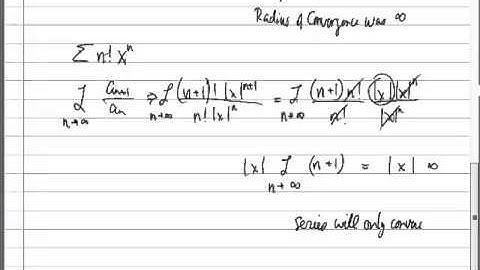 Radius of Convergence was ∞
Σ n! xⁿ
L n→∞ aₙ₊₁/aₙ ⇒ L n→∞ (n+1)! |x|ⁿ⁺¹ / n! |x|ⁿ = L n→∞ (n+1) n! |x| |x|ⁿ / n! |x|ⁿ
|x| L n→∞ (n+1) = |x| ∞
series will only conver